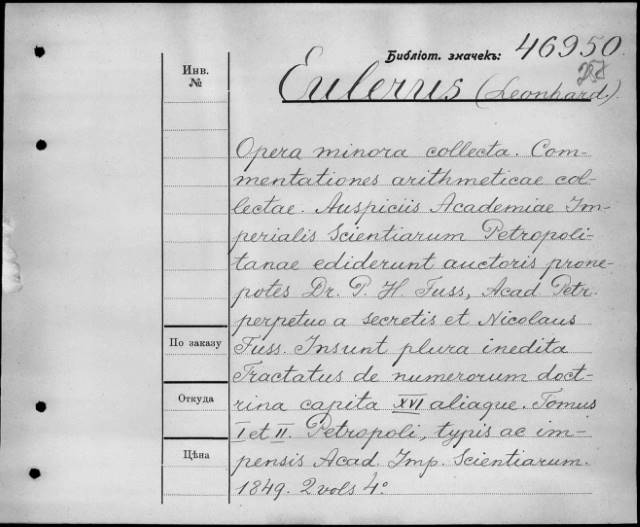 Библіот. значекъ: 46950.
Инв. №
Eulerus (Leonhard.)
Opera minora collecta. Com-
mentationes arithmeticae col-
lectae. Auspiciis Academiae Im-
perialis Scientiarum Petropoli-
tanae ediderunt auctoris prone-
potes Dr. P. H. Fuss, Acad Petr.
perpetuo a secretis et Nicolaus
По заказу
Fuss. Insunt plura inedita
Tractatus de numerorum doct-
Откуда
rina capita XVI aliaque. Tomus
I et II. Petropoli, typis ac im-
Цѣна
pensis Acad. Imp. Scientiarum.
1849. 2 vols 4°